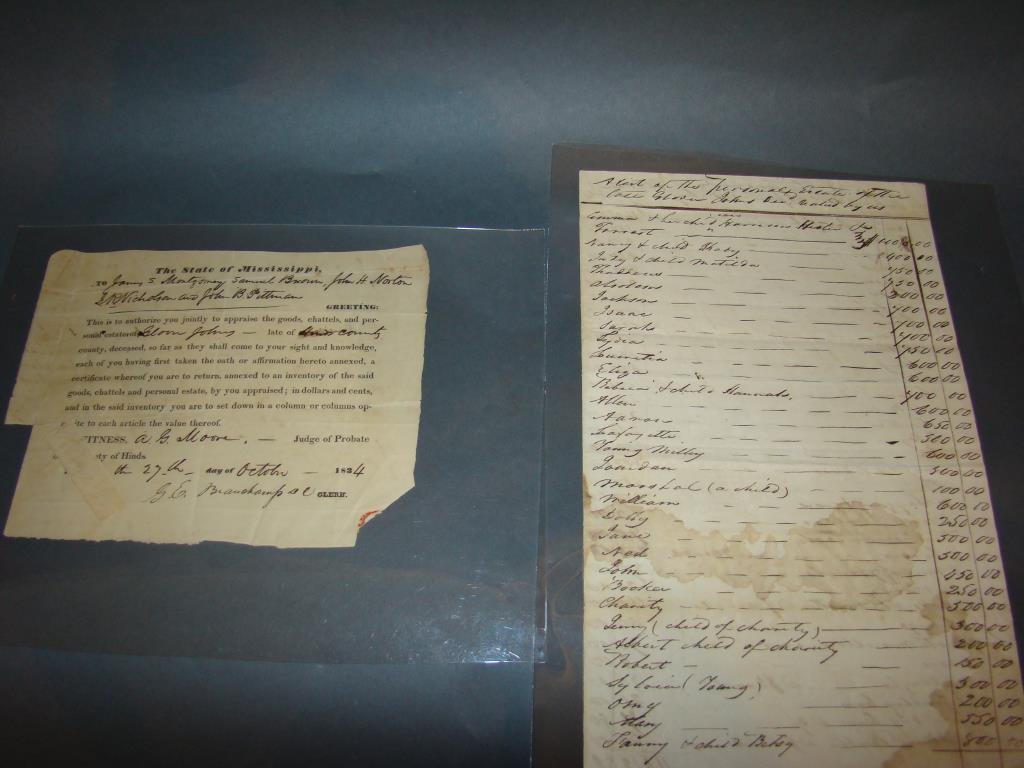 The State of Mississippi,
TO James S. Montgomery Samuel Brown, John H. Norton
Nicholson and John B Pittman
GREETING:
This is to authorize you jointly to appraise the goods, chattels, and per-
sonal estate of Johns — late of county
county, deceased, so far as they shall come to your sight and knowledge,
each of you having first taken the oath or affirmation hereto annexed, a
certificate whereof you are to return, annexed to an inventory of the said
goods, chattels and personal estate, by you appraised; in dollars and cents,
and in the said inventory you are to set down in a column or columns op-
site to each article the value thereof.
ITNESS, A. G. Moore. — Judge of Probate
ty of Hinds
th 27th day of October — 1834
G. E. Beauchamp CLERK.
A list of the personal Estate of the
late Johns Dec'd valued by us
& her child Harrison
Forrest
Nancy & child 400 00
Judy & child Matilda 750 00
Thaddeus 750 00
Absolom 300 00
Jackson 400 00
Isaac 400 00
Sarah 400 00
Lydia 450 00
600 00
Eliza 600 00
& child Hannah. 400 00
Allen 600 00
650 00
Lafayette 500 00
Young Milly 600 00
Jourdan 500 00
Marshal (a child) 100 00
William 600 00
250 00
Jane 500 00
Ned 500 00
John 450 00
Booker 250 00
Charity 500 00
Jenny (child of charity) 300 00
Albert child of charity 200 00
Robert 150 00
Sylvia (Young) 300 00
Omy 200 00
Mary 550 00
Fanny & child Betsy 800 00